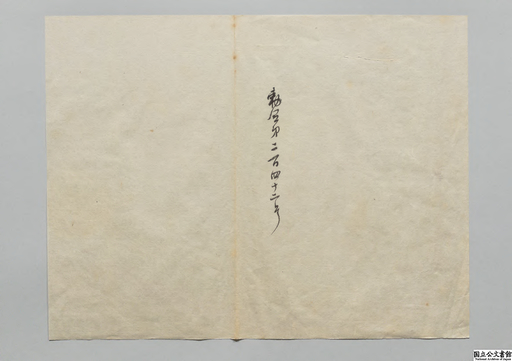 勅令第二百四十二号
国立公文書館
National Archives of Japan